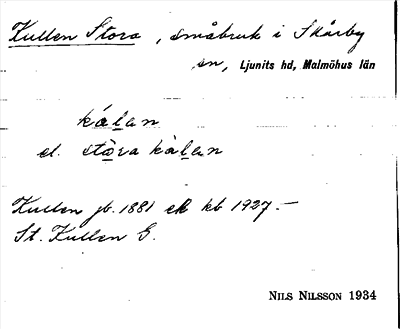 Kullen Stora, småbruk i Skårby
sn, Ljunits hd, Malmöhus län
kálan
el. stòra kàlan
Kullen jb. 1881 ek kb 1927.—
St. Kullen G.
NILS NILSSON 1934